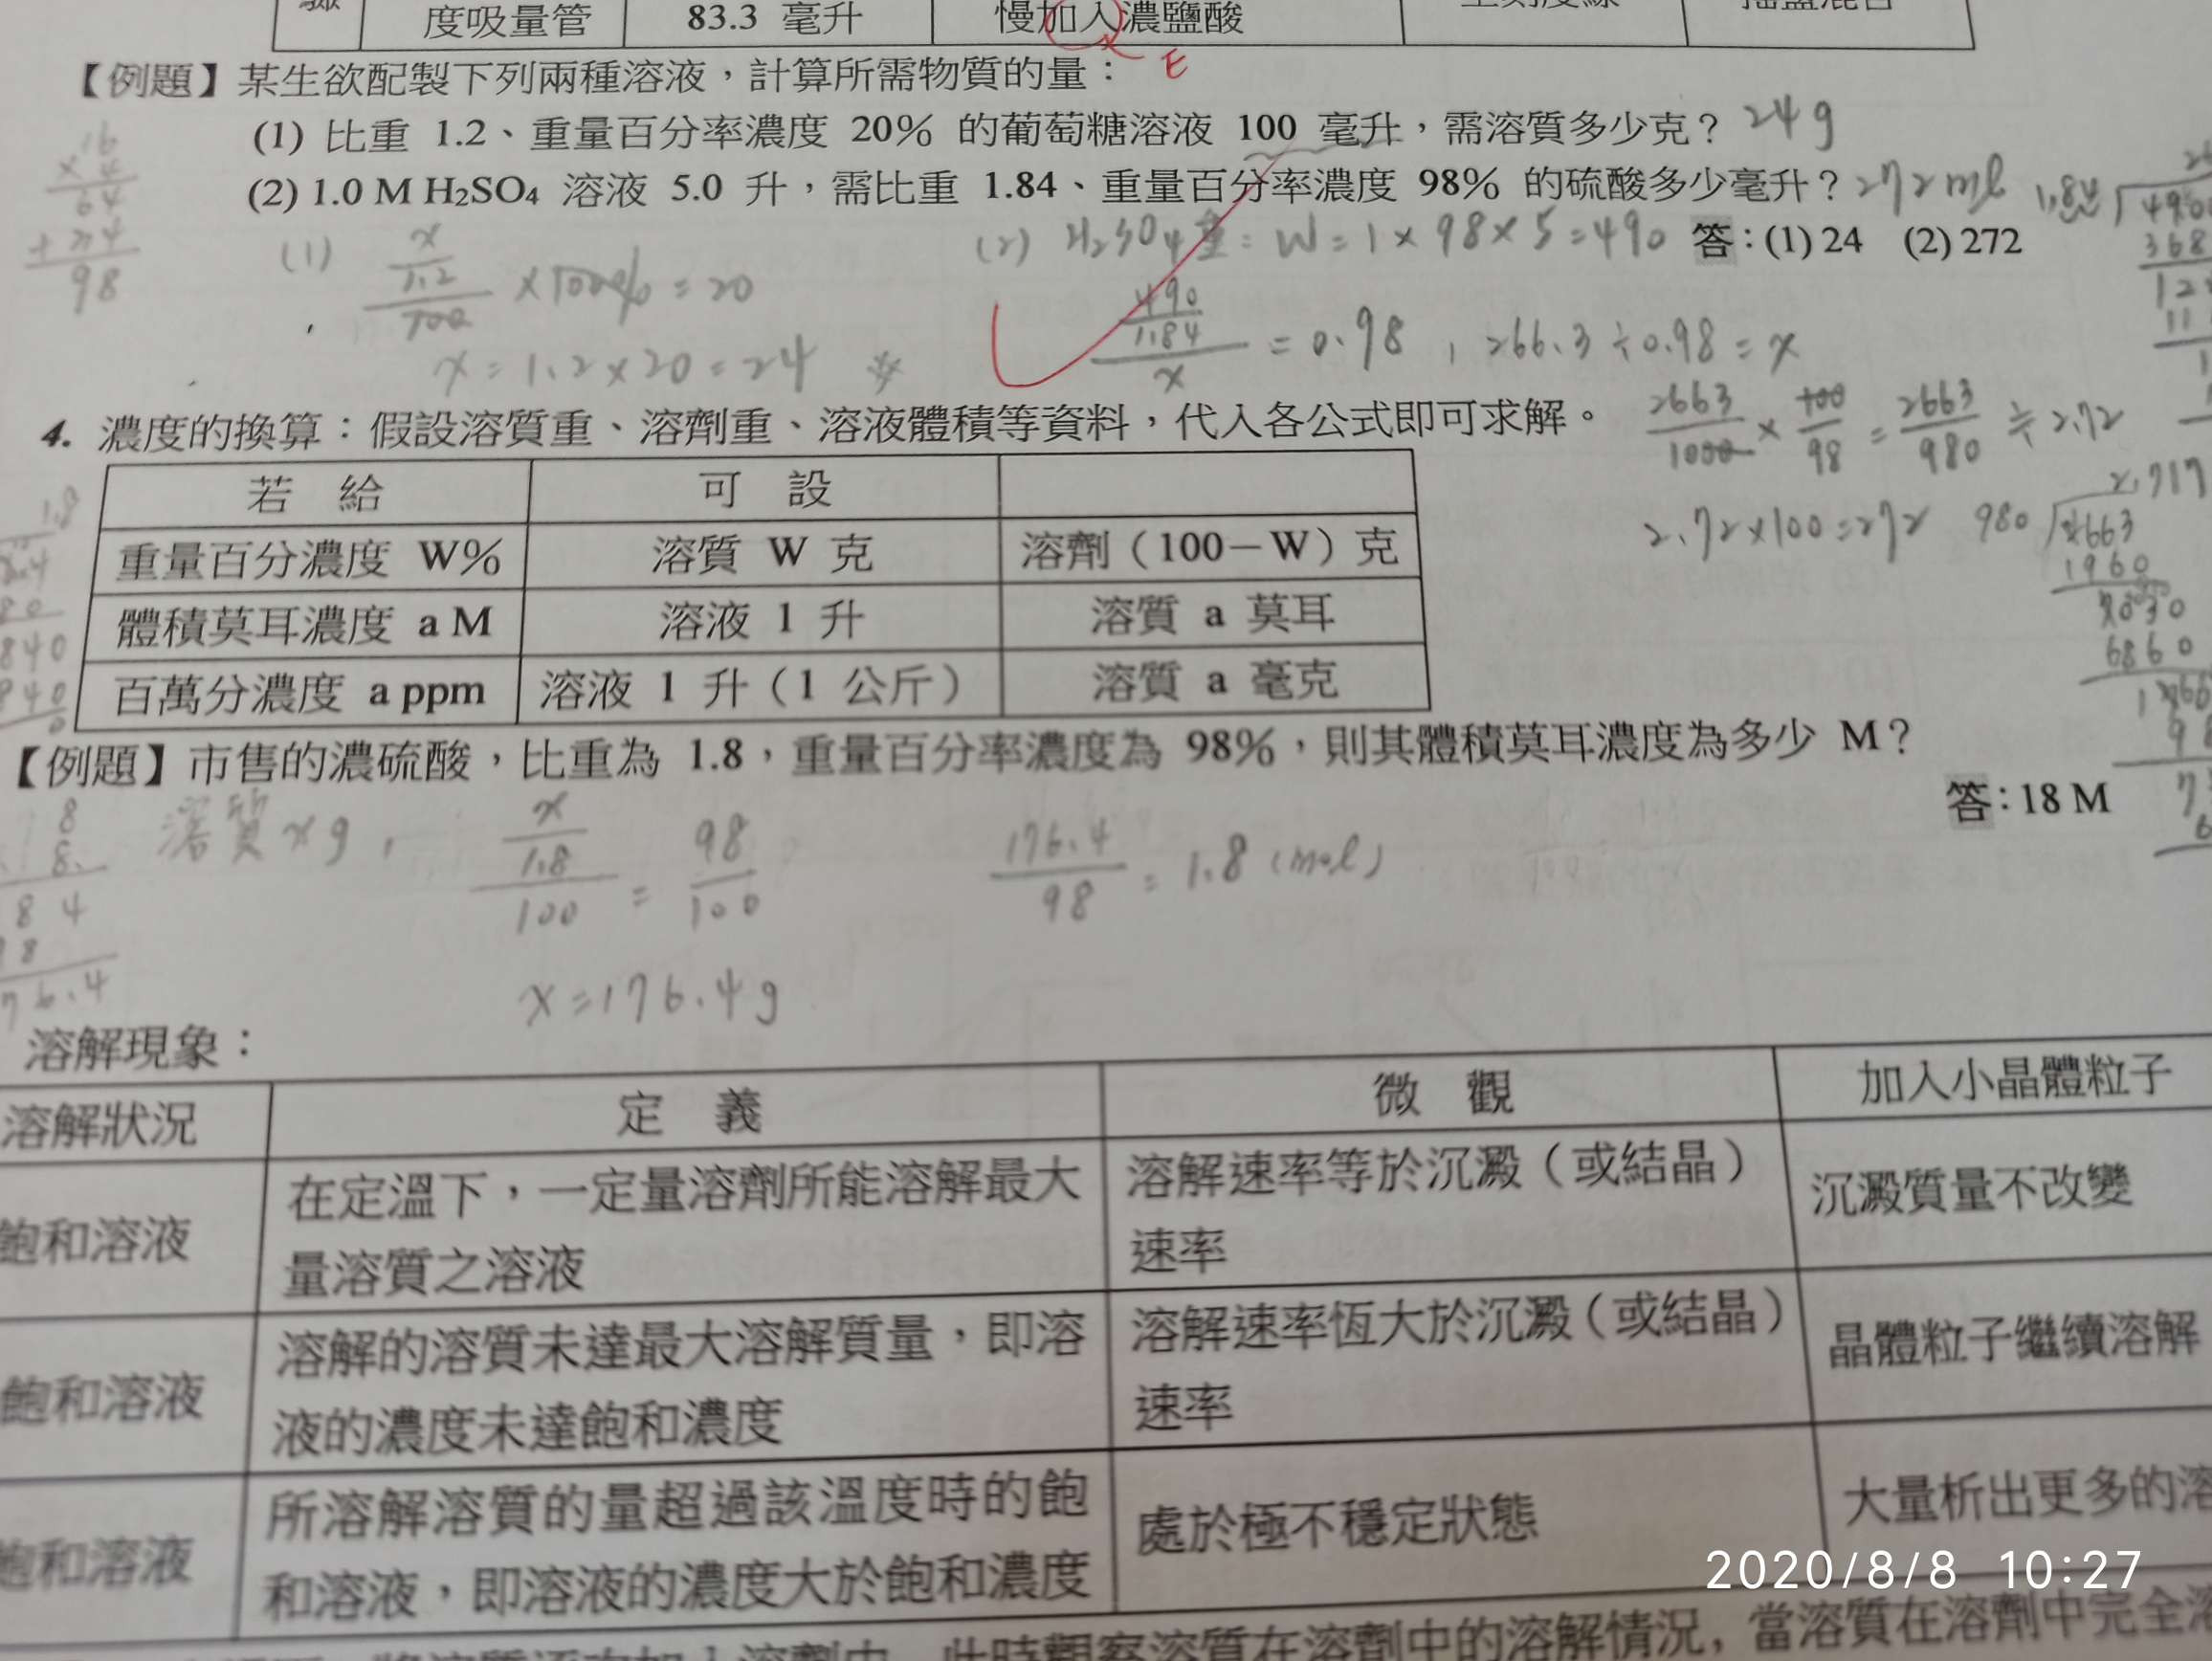 度吸量管 83.3 毫升 慢加入濃鹽酸
E
【例題】某生欲配製下列兩種溶液，計算所需物質的量：
(1) 比重 1.2、重量百分率濃度 20% 的葡萄糖溶液 100 毫升，需溶質多少克？ 24g
(2) 1.0 M H₂SO₄ 溶液 5.0 升，需比重 1.84、重量百分率濃度 98% 的硫酸多少毫升？ 272 ml
答：(1) 24 (2) 272
16
×4
64
+34
98
(1) x/1.2/100 × 100% = 20
x = 1.2 × 20 = 24
(2) H₂SO₄重： W = 1 × 98 × 5 = 490
490/1.84/x = 0.98 , 266.3 ÷ 0.98 = x
2663/1000 × 100/98 = 2663/980 ≒ 2.72
2.72 × 100 = 272
980 2663
1960
6860
4. 濃度的換算：假設溶質重、溶劑重、溶液體積等資料，代入各公式即可求解。
若 給 可 設
重量百分濃度 W% 溶質 W 克 溶劑（100－W）克
體積莫耳濃度 a M 溶液 1 升 溶質 a 莫耳
百萬分濃度 a ppm 溶液 1 升（1 公斤） 溶質 a 毫克
【例題】市售的濃硫酸，比重為 1.8，重量百分率濃度為 98%，則其體積莫耳濃度為多少 M？
答：18 M
溶質 x g , x/1.8/100 = 98/100
176.4/98 = 1.8 (mol)
x = 176.4 g
溶解現象：
溶解狀況 定 義 微 觀 加入小晶體粒子
飽和溶液 在定溫下，一定量溶劑所能溶解最大 溶解速率等於沉澱（或結晶） 沉澱質量不改變
量溶質之溶液 速率
飽和溶液 溶解的溶質未達最大溶解質量，即溶 溶解速率恆大於沉澱（或結晶） 晶體粒子繼續溶解
液的濃度未達飽和濃度 速率
飽和溶液 所溶解溶質的量超過該溫度時的飽 處於極不穩定狀態 大量析出更多的溶
和溶液，即溶液的濃度大於飽和濃度
2020/8/8 10:27
此時觀察溶質在溶劑中的溶解情況，當溶質在溶劑中完全溶